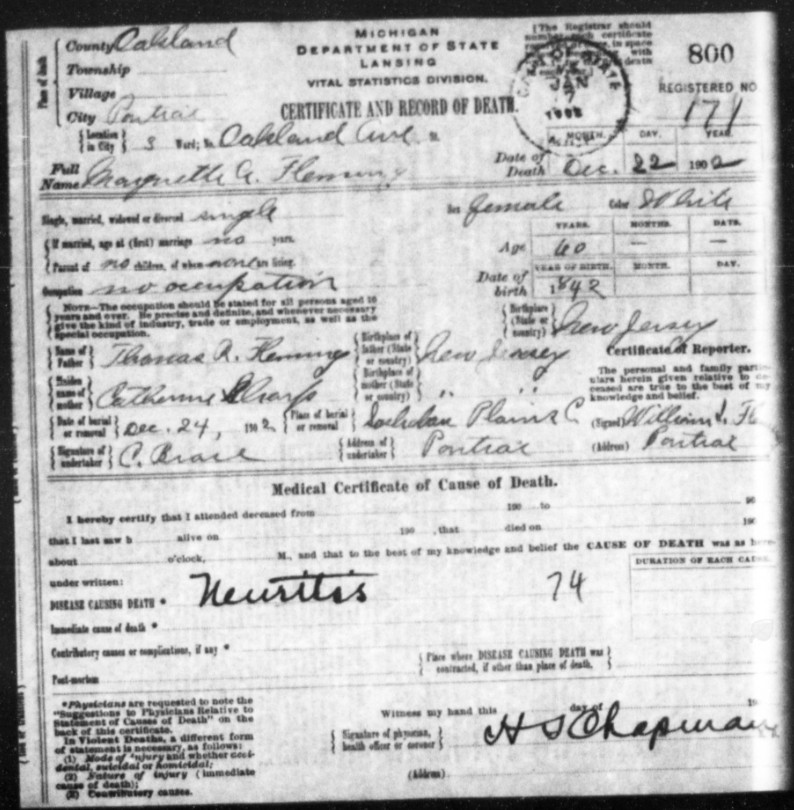 Place of death
County Oakland
Township
Village
City Pontiac
Location in City 3 Ward; No. Oakland Ave St.
MICHIGAN
DEPARTMENT OF STATE
LANSING
VITAL STATISTICS DIVISION.
CERTIFICATE AND RECORD OF DEATH.
[The Registrar should
certificate
in space
with
death
JAN
7
800
REGISTERED NO
171
Full Name A. Fleming
MONTH. DAY. YEAR.
Date of Death Dec. 22 1902
Single, married, widowed or divorced single
Sex female Color White
If married, age at (first) marriage no years.
YEARS. MONTHS. DAYS.
Age 60 — —
Parent of no children, of whom none are living.
YEAR OF BIRTH. MONTH. DAY.
Date of birth 1842
Occupation no occupation
NOTE—The occupation should be stated for all persons aged 10
years and over. Be precise and definite, and whenever necessary
give the kind of industry, trade or employment, as well as the
special occupation.
Birthplace (State or country) New Jersey
Name of Father Thomas R. Fleming
Birthplace of father (State or country) New Jersey
Certificate of Reporter.
The personal and family
herein given relative to
are true to the best of my
knowledge and belief.
Maiden name of mother Catherine Sharps
Birthplace of mother (State or country) " "
Date of burial or removal Dec. 24, 1902
Place of burial or removal Plains C
(Signed) William
Signature of undertaker C.
Address of undertaker Pontiac
(Address) Pontiac
Medical Certificate of Cause of Death.
I hereby certify that I attended deceased from 190 to 190
that I last saw h alive on 190 , that died on 190
about o'clock, M., and that to the best of my knowledge and belief the CAUSE OF DEATH was as
under written:
DURATION OF EACH CAUSE
DISEASE CAUSING DEATH * Neuritis 74
Immediate cause of death *
Contributory causes or complications, if any *
Place where DISEASE CAUSING DEATH was
contracted, if other than place of death.
Post-mortem
*Physicians are requested to note the
"Suggestions to Physicians Relative to
Statement of Causes of Death" on the
back of this certificate.
In Violent Deaths, a different form
of statement is necessary, as follows:
(1) Mode of injury and whether acci-
dental, suicidal or homicidal;
(2) Nature of injury (immediate
cause of death);
(3) Contributory causes.
Witness my hand this day of 19
Signature of physician, health officer or coroner H S Chapman
(Address)